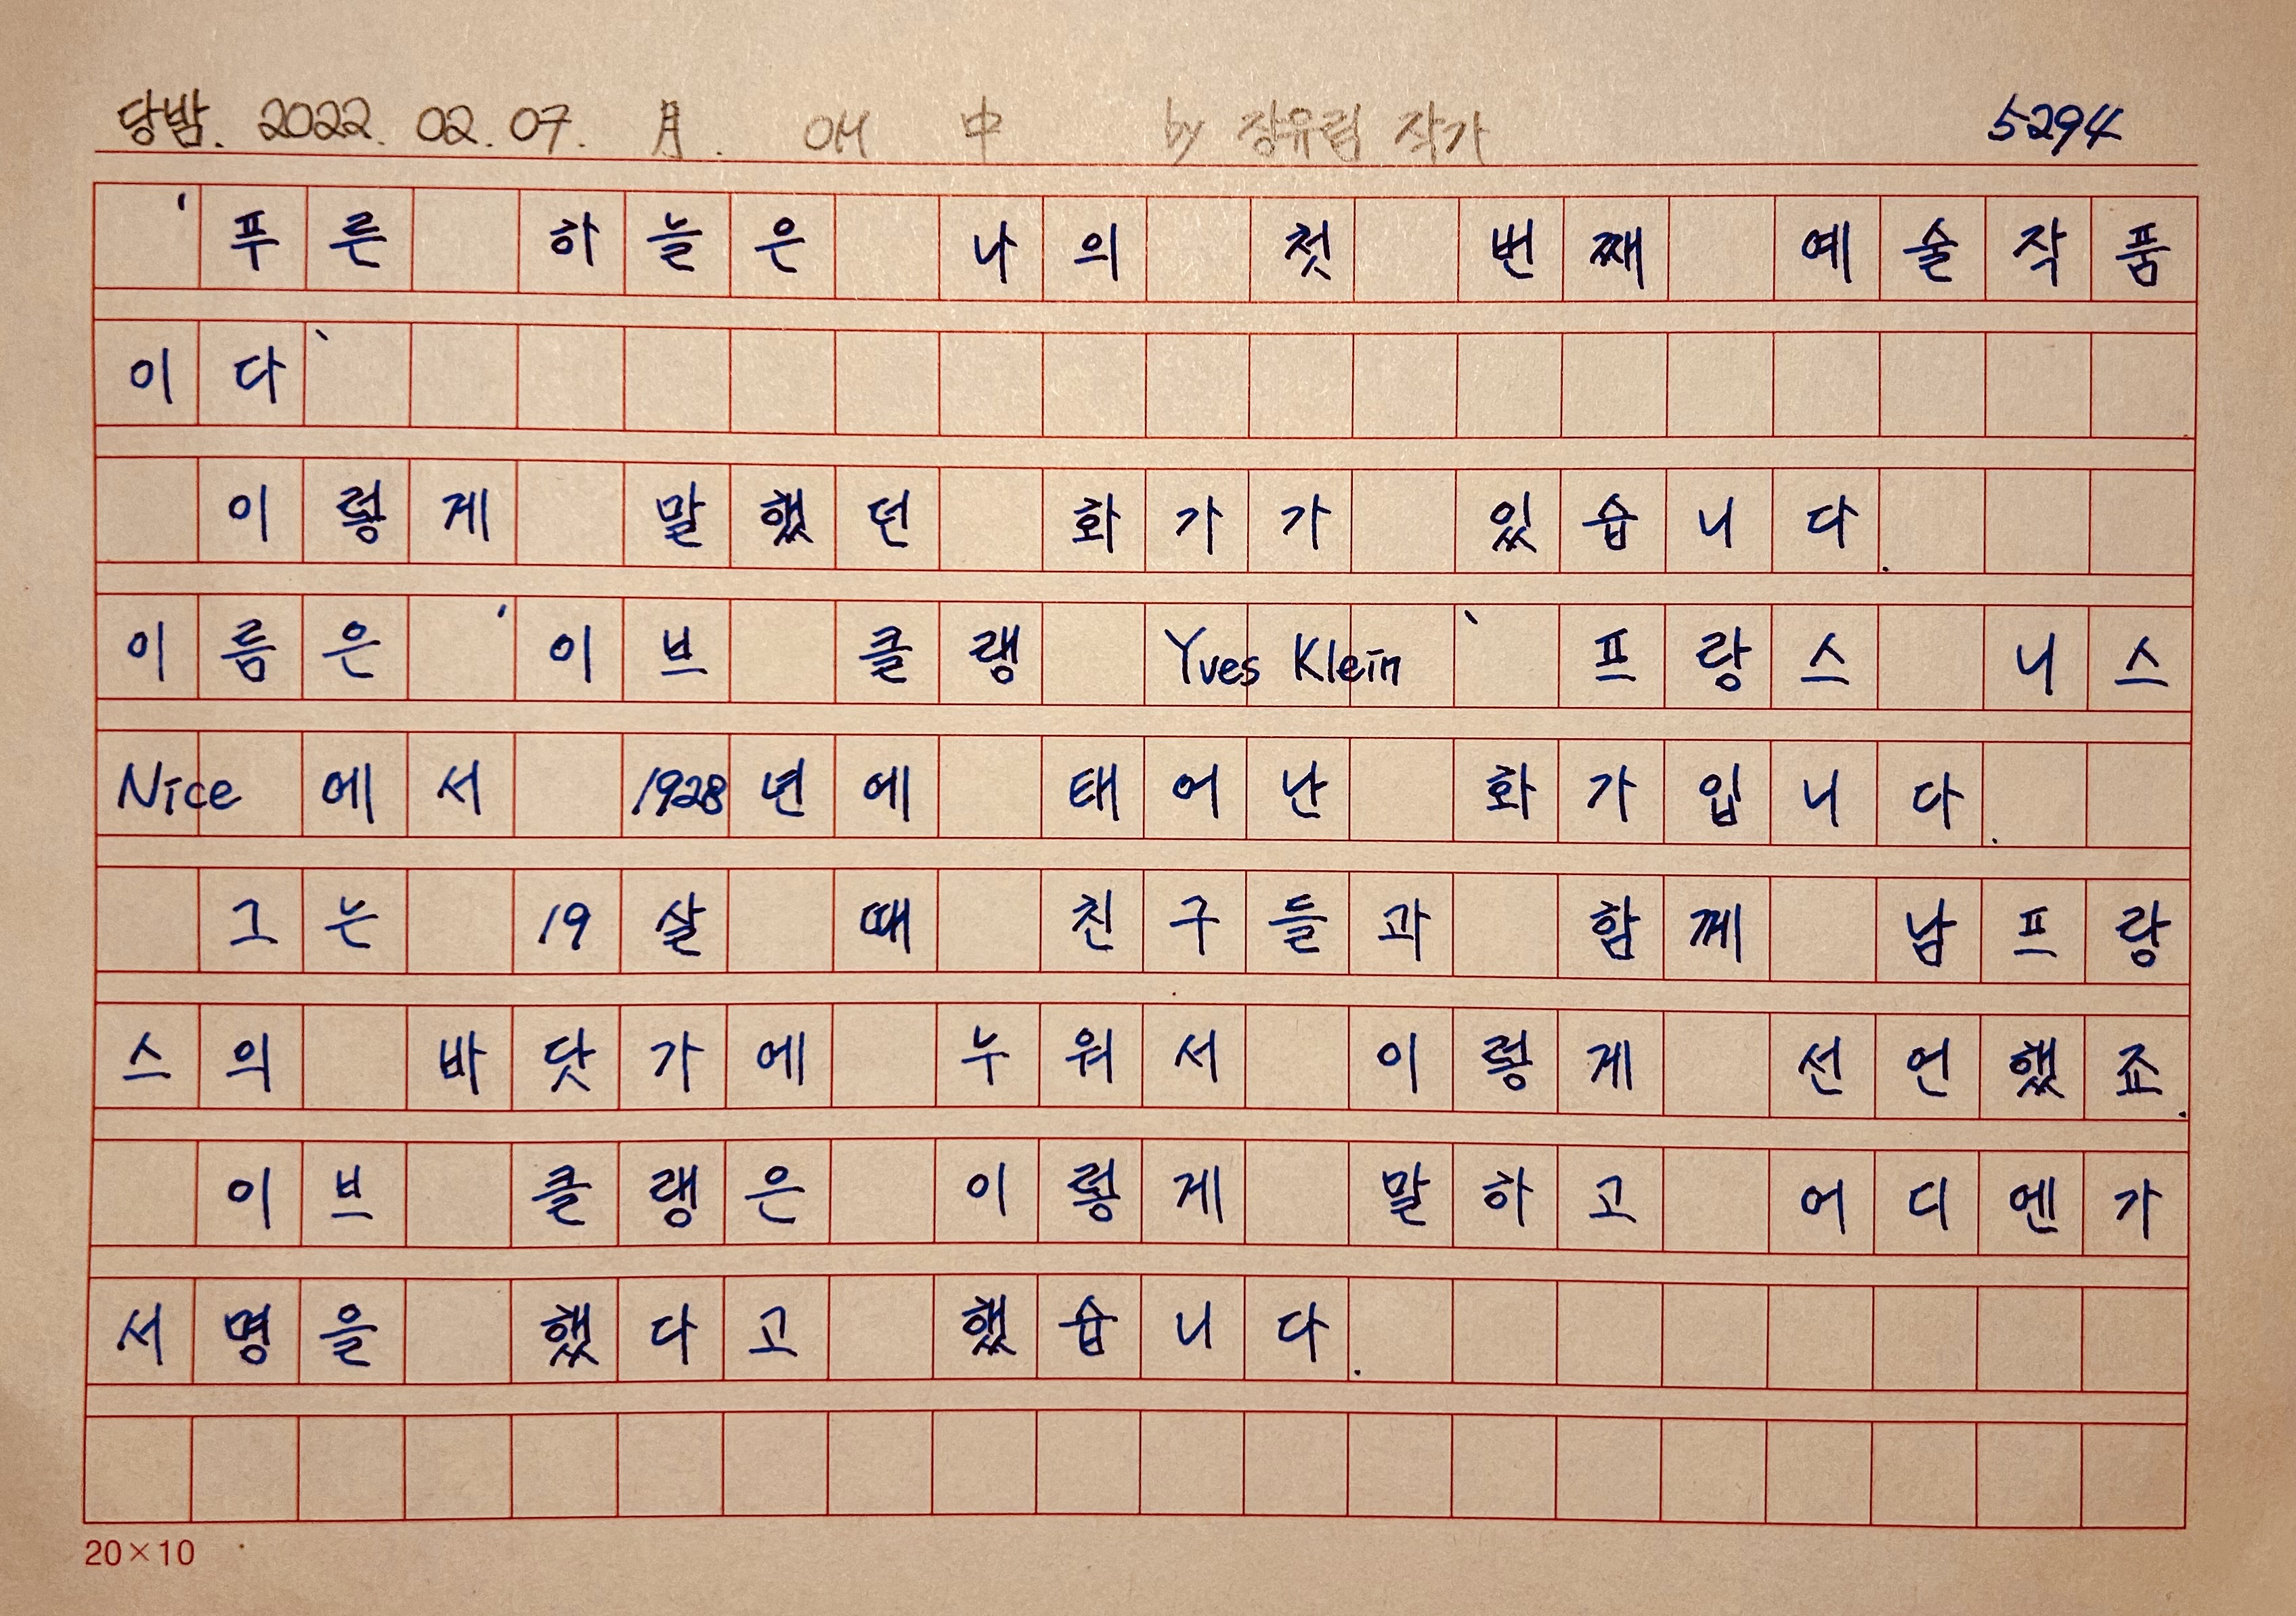 당밤. 2022. 02. 07. 月. OH 中 by 장유림 작가 5294
'푸른 하늘은 나의 첫 번째 예술작품
이다'
이렇게 말했던 화가가 있습니다.
이름은 '이브 클랭 Yves Klein' 프랑스 니스
Nice에서 1928년에 태어난 화가입니다.
그는 19살 때 친구들과 함께 남프랑
스의 바닷가에 누워서 이렇게 선언했죠.
이브 클랭은 이렇게 말하고 어디엔가
서명을 했다고 했습니다.
20×10